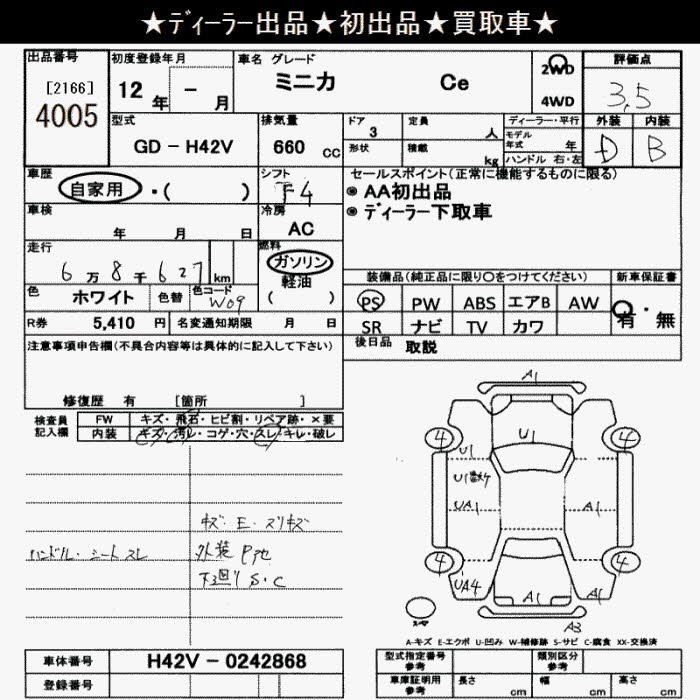 ★ディーラー出品★初出品★買取車★
出品番号 初度登録年月 車名 グレード 評価点
[2166] 12 年 - 月 ミニカ Ce 2WD 3.5
4005 4WD
型式 排気量 ドア 定員 ディーラー・平行 外装 内装
GD - H42V 660 CC 3 人 モデル年式 年 D B
形状 積載 kg ハンドル 右・左
車歴 シフト セールスポイント(正常に機能するものに限る)
自家用 ・( ) F4 ◉ AA初出品
車検 冷房 ◉ ディーラー下取車
年 月 日 AC
走行 燃料
6 万 8 千 627 km ガソリン
軽油 装備品(純正品に限り〇をつけてください) 新車保証書
色 ホワイト 色替 色コード W09 ( ) PS PW ABS エアB AW 有・無
R券 5,410 円 名変通知期限 月 日 SR ナビ TV カワ
注意事項申告欄(不具合内容等は具体的に記入して下さい) 後日品 取説
修復歴 有 [箇所 ]
検査員記入欄 FW キズ・飛石・ヒビ割・リペア跡・×要
内装 キズ・汚レ・コゲ・穴・スレ・キレ・破レ
A1
4 4
U1
U1
U1数ケ
UA1 A1
キズ・E・スリキズ
ハンドル・シートスレ 外装P他
下廻りS・C
4 4
UA4 A1 A1
スペア
A3
A-キズ E-エクボ U-凹み W-補修跡 S-サビ C-腐食 XX-交換済
車体番号 H42V - 0242868 型式指定番号 参考 類別区分 参考
登録番号 車庫証明用 参考 長さ cm 幅 cm 高さ cm